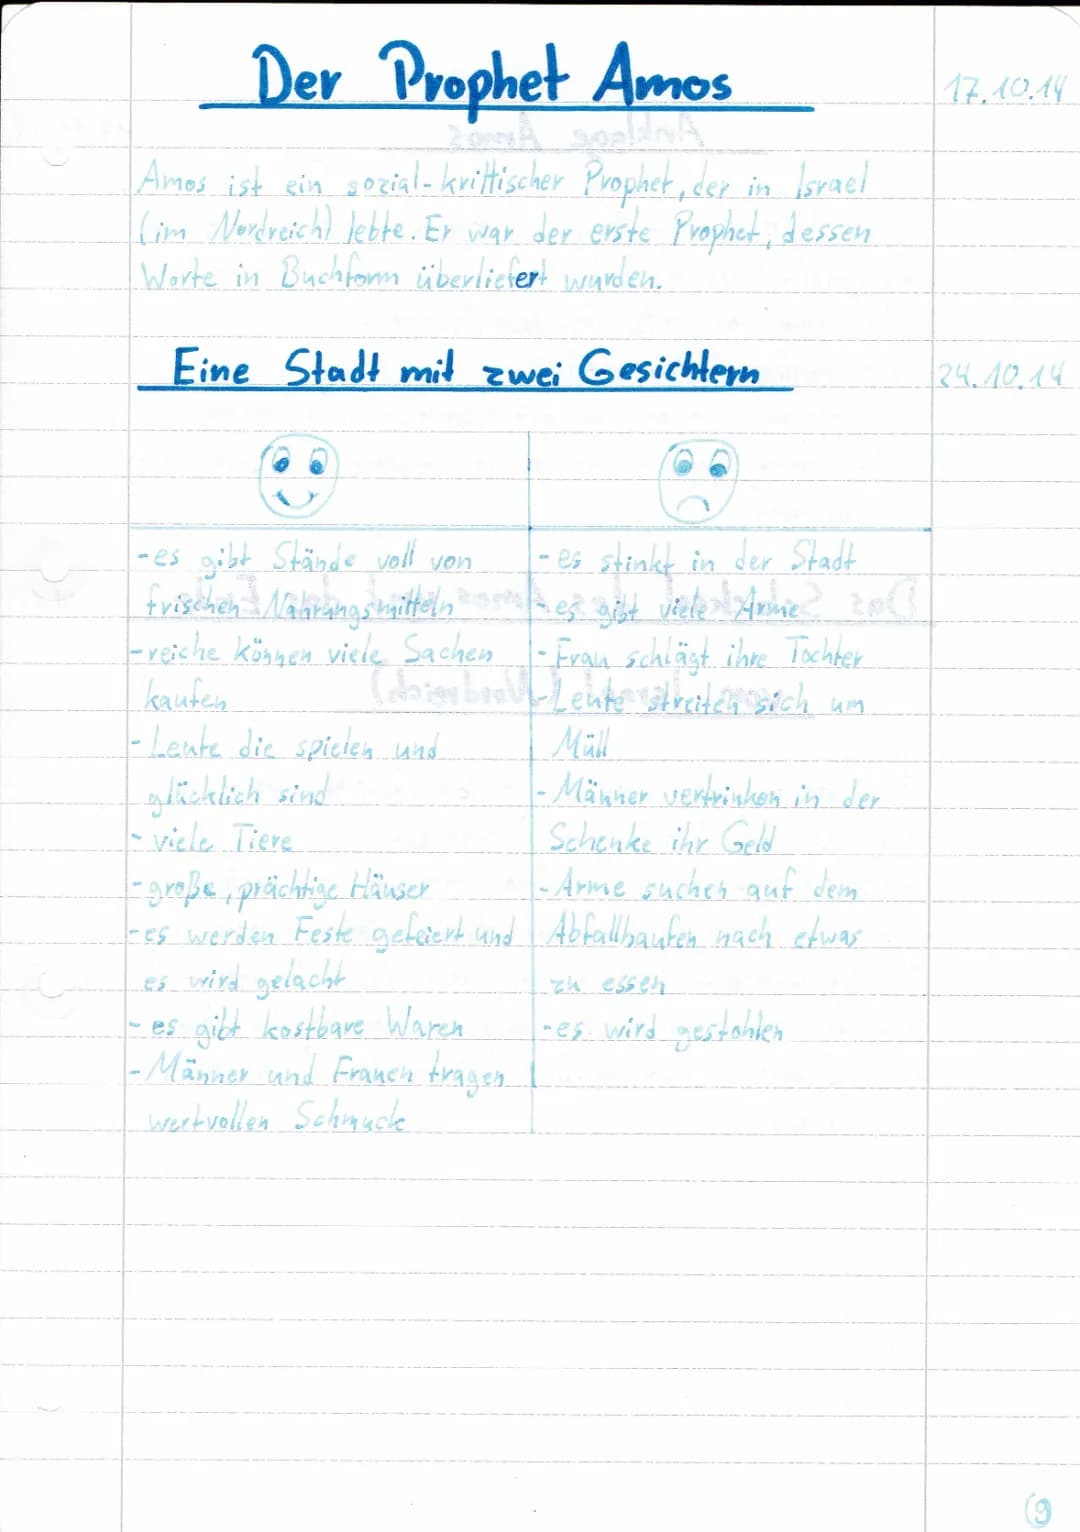 Der Prophet Amos
17.10.14
Amos ist ein sozial-krittischer Prophet, der in Israel
(im Nordreich) lebte. Er war der erste Prophet, dessen
Worte in Buchform überliefert wurden.
Eine Stadt mit zwei Gesichtern
24.10.14
-es gibt Stände voll von
frischen Nahrungsmitteln
-reiche können viele Sachen
kaufen
-Leute die spielen und
glücklich sind
-viele Tiere
-große, prächtige Häuser
-es werden Feste gefeiert und
es wird gelacht
-es gibt kostbare Waren
-Männer und Frauen tragen
wertvollen Schmuck
-es stinkt in der Stadt
-es gibt viele Arme
-Frau schlägt ihre Tochter
-Leute streiten sich um
Müll
-Männer vertrinken in der
Schenke ihr Geld
-Arme suchen auf dem
Abfallhaufen nach etwas
zu essen
-es wird gestohlen
9